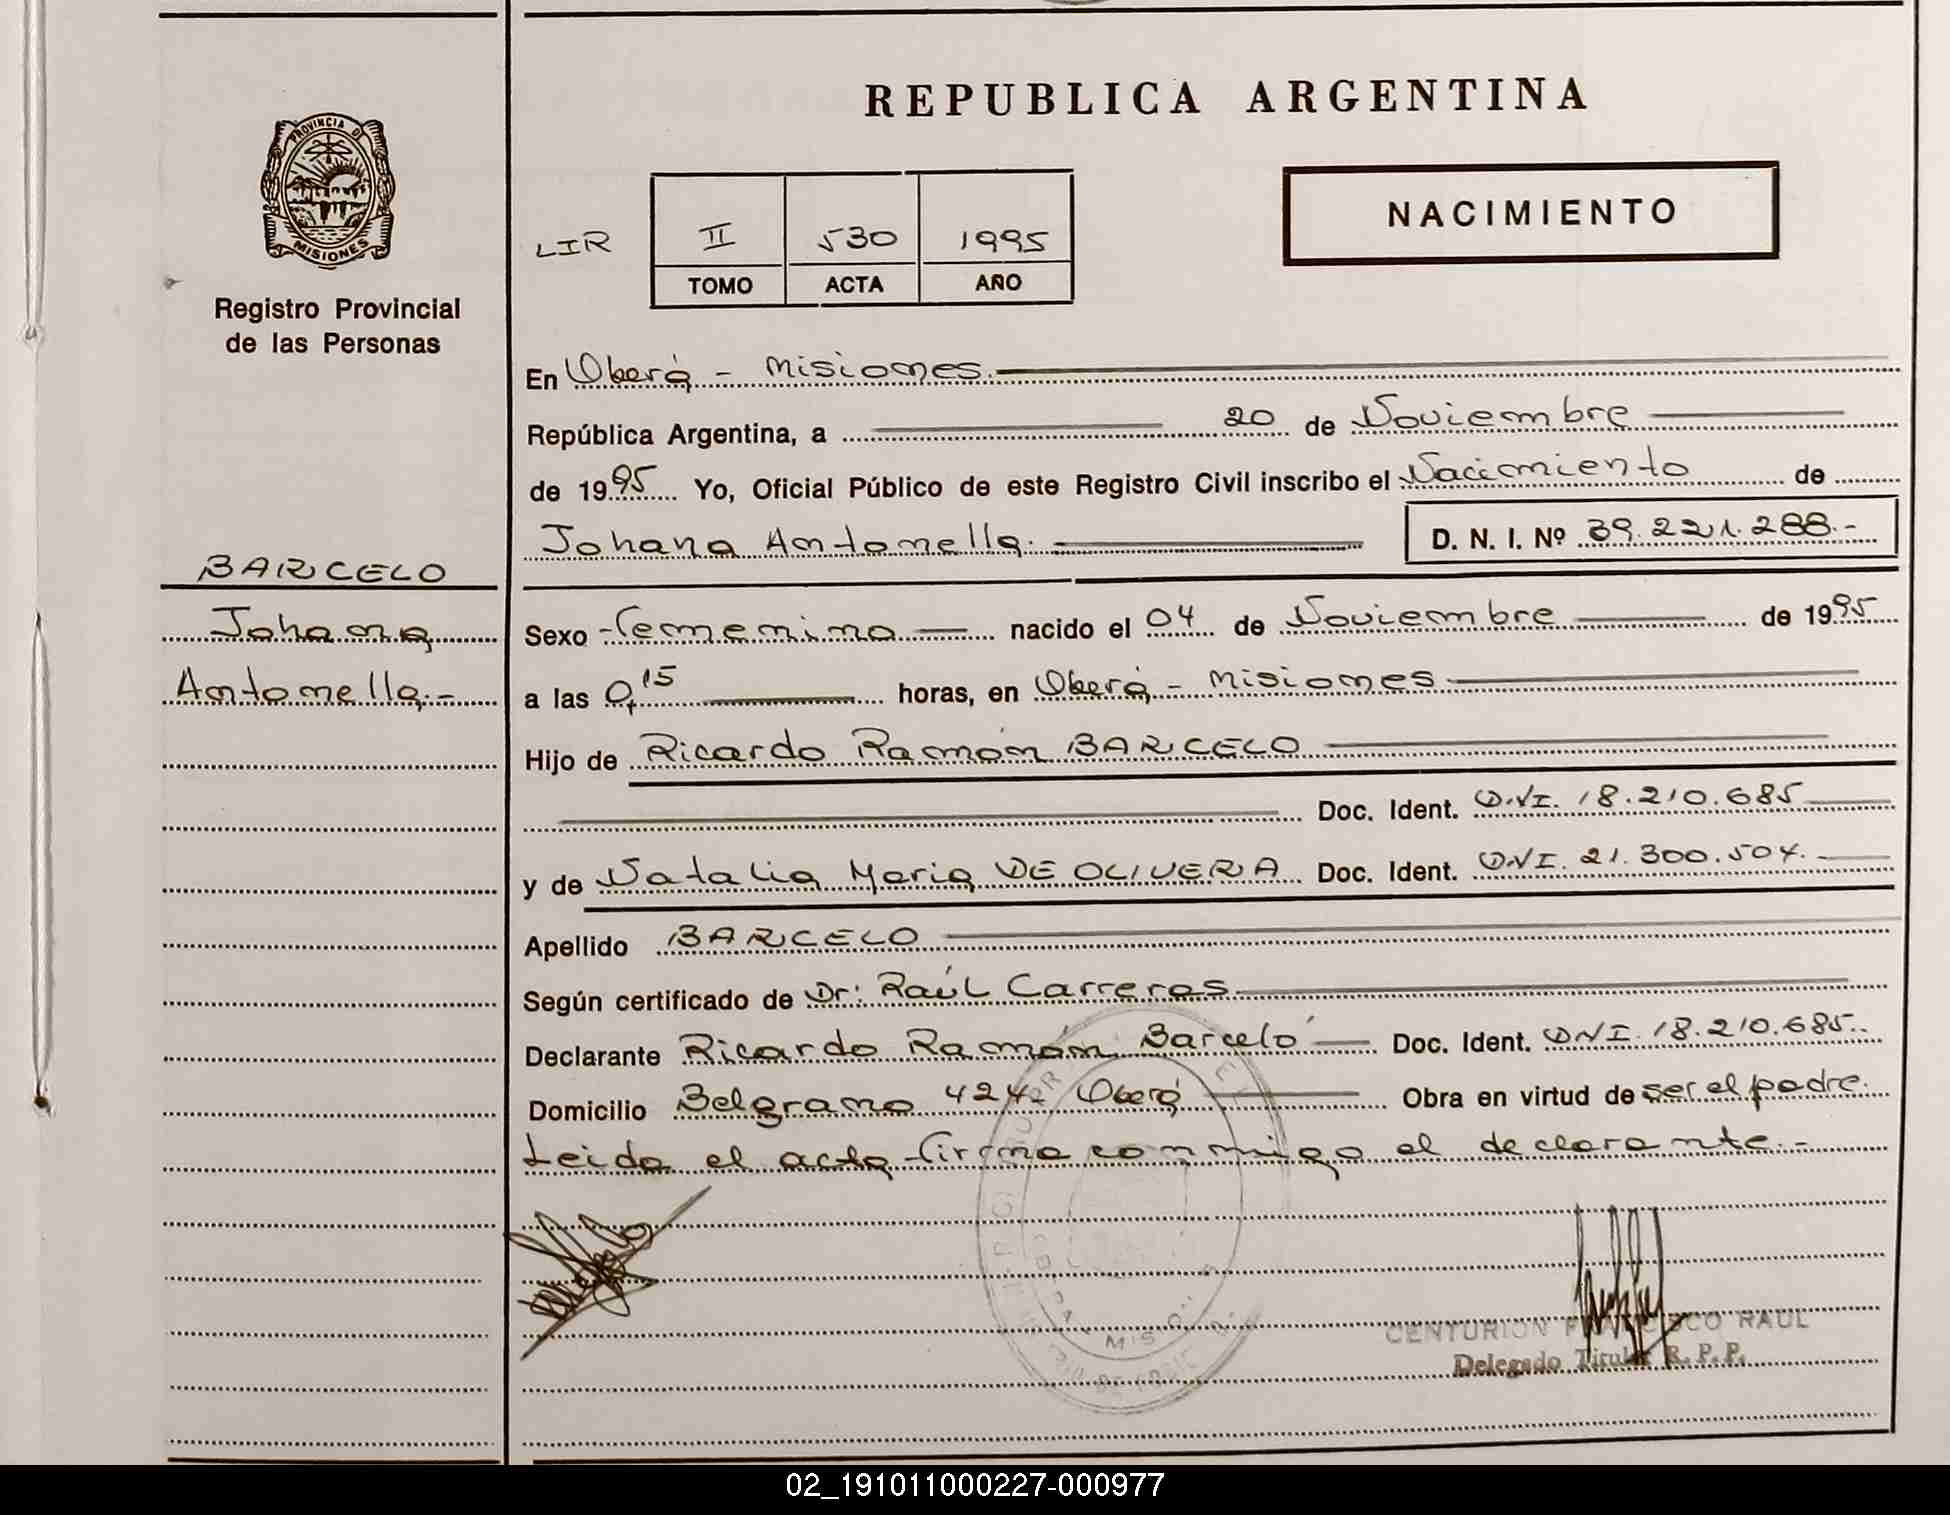 REPUBLICA ARGENTINA
PROVINCIA DE
MISIONES
Registro Provincial
de las Personas
NACIMIENTO
LIR II 530 1995
TOMO ACTA AÑO
En Oberá - Misiones.
República Argentina, a 20 de Noviembre
de 1995 Yo, Oficial Público de este Registro Civil inscribo el Nacimiento de
Johana Antonella. D. N. I. Nº 39.221.288.-
BARCELO
Johana
Antonella.-
Sexo Femenino nacido el 04 de Noviembre de 1995
a las 0,15 horas, en Oberá - Misiones
Hijo de Ricardo Ramón BARCELO
Doc. Ident. DNI. 18.210.685
y de Natalia Maria DE OLIVERA Doc. Ident. DNI. 21.300.504.
Apellido BARCELO
Según certificado de Dr: Raúl Carreras
Declarante Ricardo Ramón Barceló Doc. Ident. DNI. 18.210.685.
Domicilio Belgrano 424 Oberá Obra en virtud de ser el padre.
Leida el acta firma conmigo el declarante.-
MISIONES
CENTURION FRANCISCO RAUL
Delegado Titular R. P. P.
02_191011000227-000977